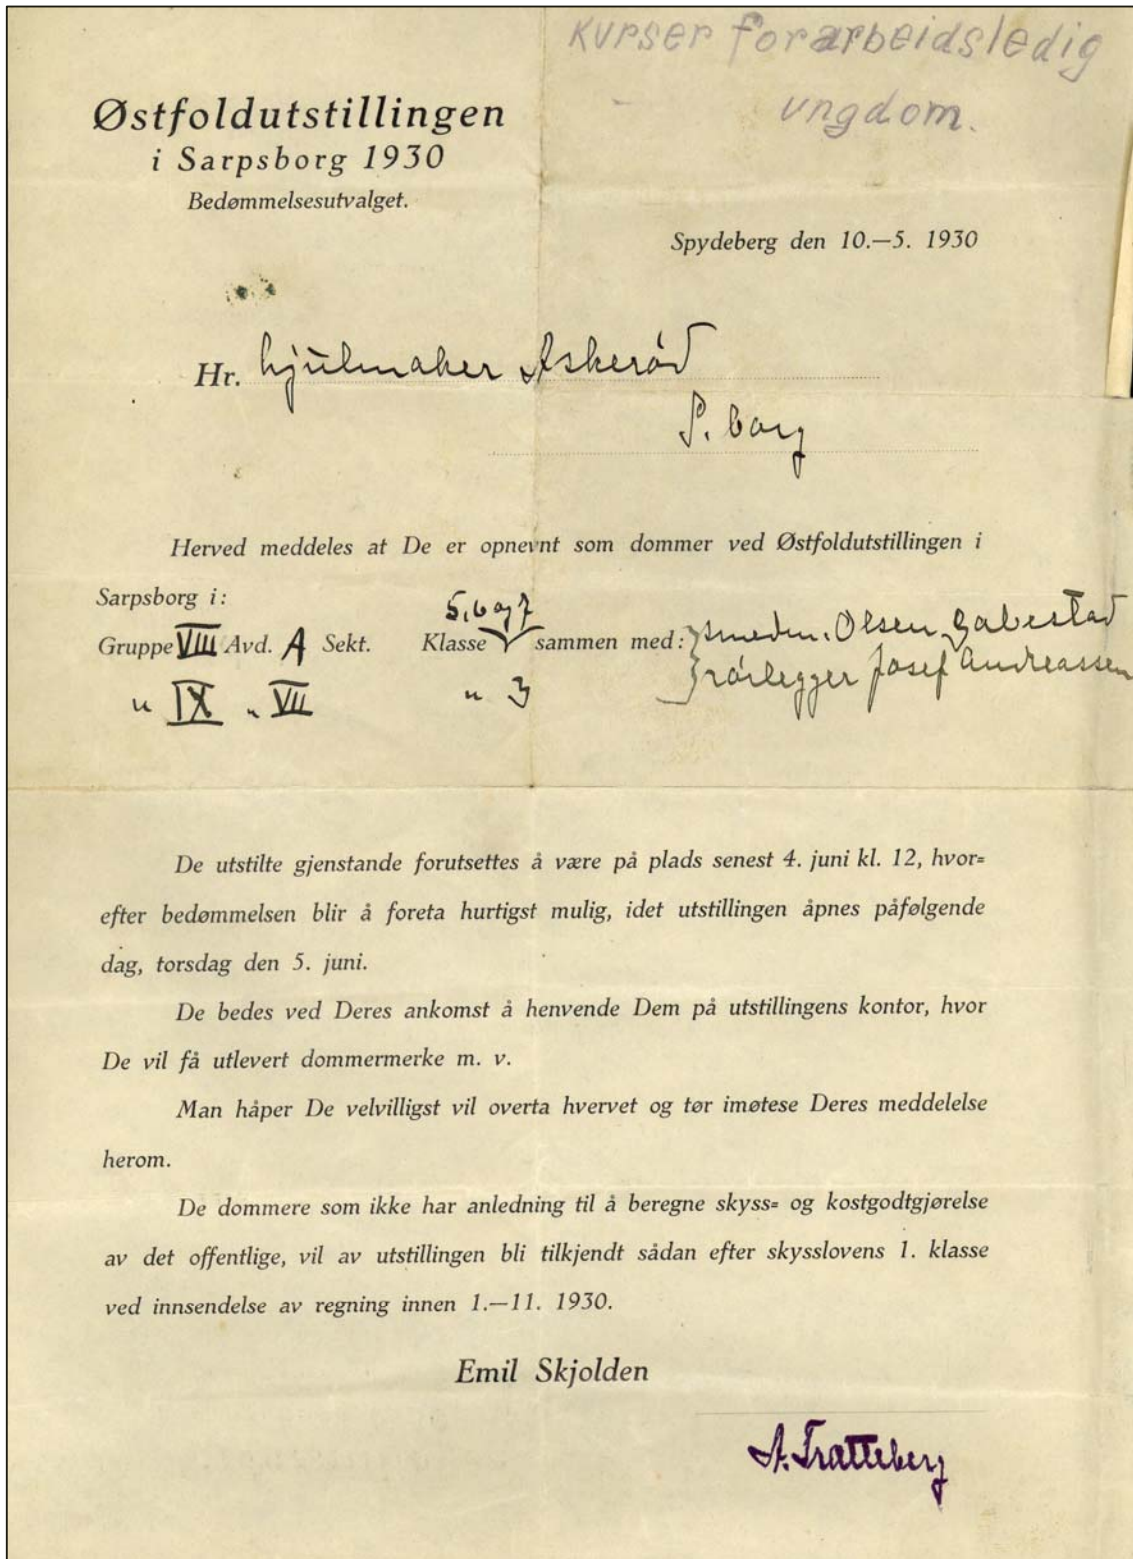 Kurser for arbeidsledig
ungdom.
Østfoldutstillingen
i Sarpsborg 1930
Bedømmelsesutvalget.
Spydeberg den 10.—5. 1930
Hr. hjulmaker Askerød
S.borg
Herved meddeles at De er opnevnt som dommer ved Østfoldutstillingen i
Sarpsborg i:
5, 6 og 7
Gruppe VIII Avd. A Sekt. Klasse sammen med: Olsen
rørlegger Josef Andreassen
" IX " VII " 3
De utstilte gjenstande forutsettes å være på plads senest 4. juni kl. 12, hvor=
efter bedømmelsen blir å foreta hurtigst mulig, idet utstillingen åpnes påfølgende
dag, torsdag den 5. juni.
De bedes ved Deres ankomst å henvende Dem på utstillingens kontor, hvor
De vil få utlevert dommermerke m. v.
Man håper De velvilligst vil overta hvervet og tør imøtese Deres meddelelse
herom.
De dommere som ikke har anledning til å beregne skyss= og kostgodtgjørelse
av det offentlige, vil av utstillingen bli tilkjendt sådan efter skysslovens 1. klasse
ved innsendelse av regning innen 1.—11. 1930.
Emil Skjolden
A. Tratteberg